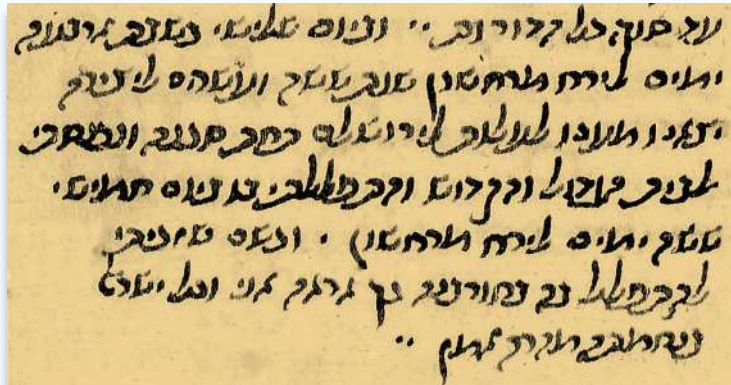 עד סוף כל הדורות ·· וביום שלישי בשבת ארבעה
ימים לירח מרחשון שנת ששה ועשרים ליצירה
יצאנו מעכו לעלות לירושלם תחת סכנה ונכנסתי
לבית הגדול והקדוש והתפללתי בו ביום חמישי
ששה ימים לירח מרחשון · וכשם שזכיתי
להתפלל בה בחורבנה כך אראה אני וכל ישראל
בנחמתה מהרה אמן ··